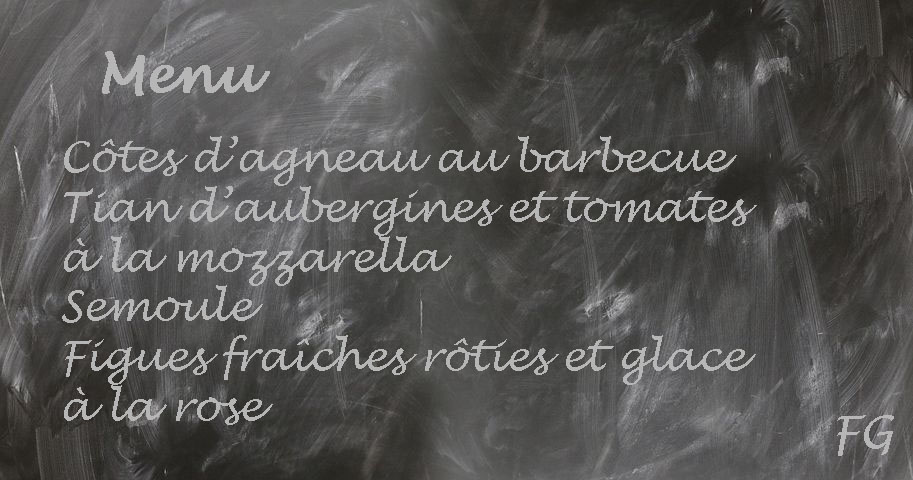 Menu
Côtes d’agneau au barbecue
Tian d’aubergines et tomates
à la mozzarella
Semoule
Figues fraîches rôties et glace
à la rose
FG